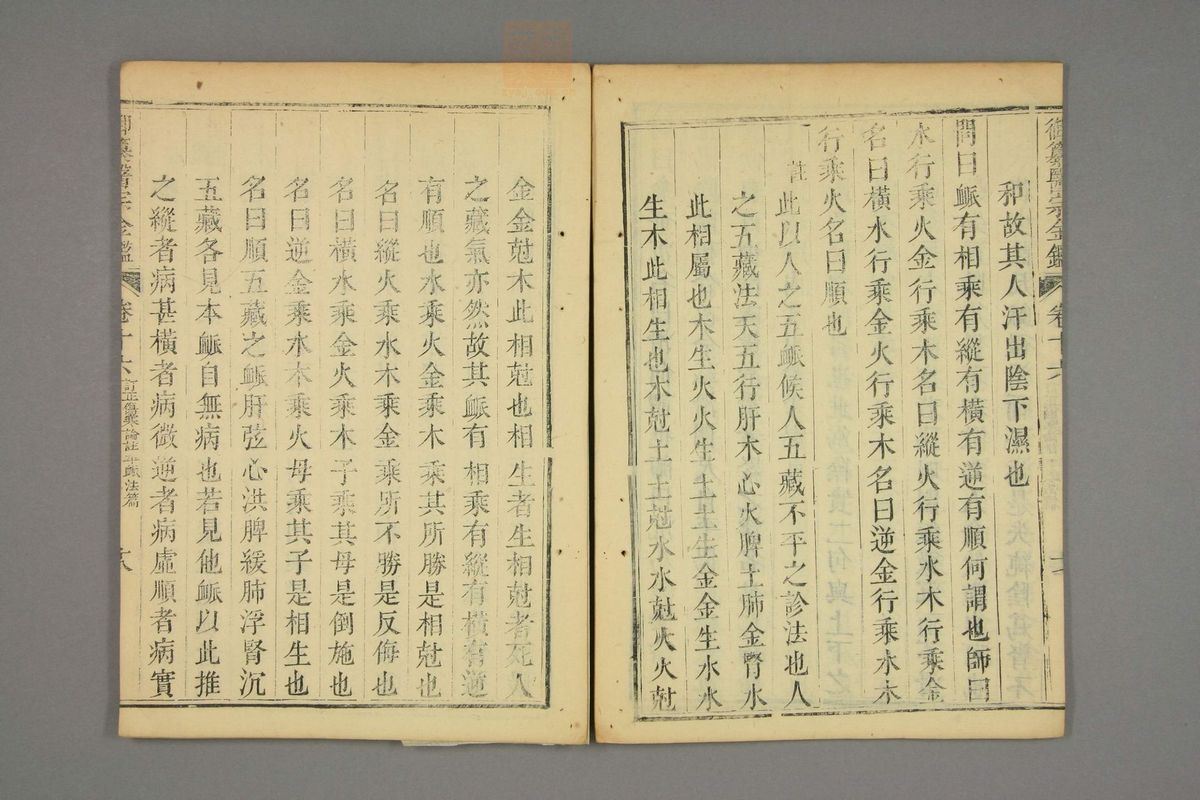 御纂醫宗金鑑 卷十六
和故其人汗出陰下濕也
問曰脈有相乘有縱有橫有逆有順何謂也師曰
水行乘火金行乘木名曰縱火行乘水木行乘金
名曰橫水行乘金火行乘木名曰逆金行乘水木
行乘火名曰順也
註此以人之五脈候人五藏不平之診法也人
之五藏法天五行肝木心火脾土肺金腎水
此相屬也木生火火生土土生金金生水水
生木此相生也木尅土土尅水水尅火火尅
金金尅木此相尅也相生者生相尅者死人
之藏氣亦然故其脈有相乘有縱有橫有逆
有順也水乘火金乘木乘其所勝是相尅也
名曰縱火乘水木乘金乘所不勝是反侮也
名曰橫水乘金火乘木子乘其母是倒施也
名曰逆金乘水木乘火母乘其子是相生也
名曰順五藏之脈肝弦心洪脾緩肺浮腎沉
五藏各見本脈自無病也若見他脈以此推
之縱者病甚橫者病微逆者病虛順者病實
御纂醫宗金鑑 卷十六 訂正傷寒論註平脈法篇